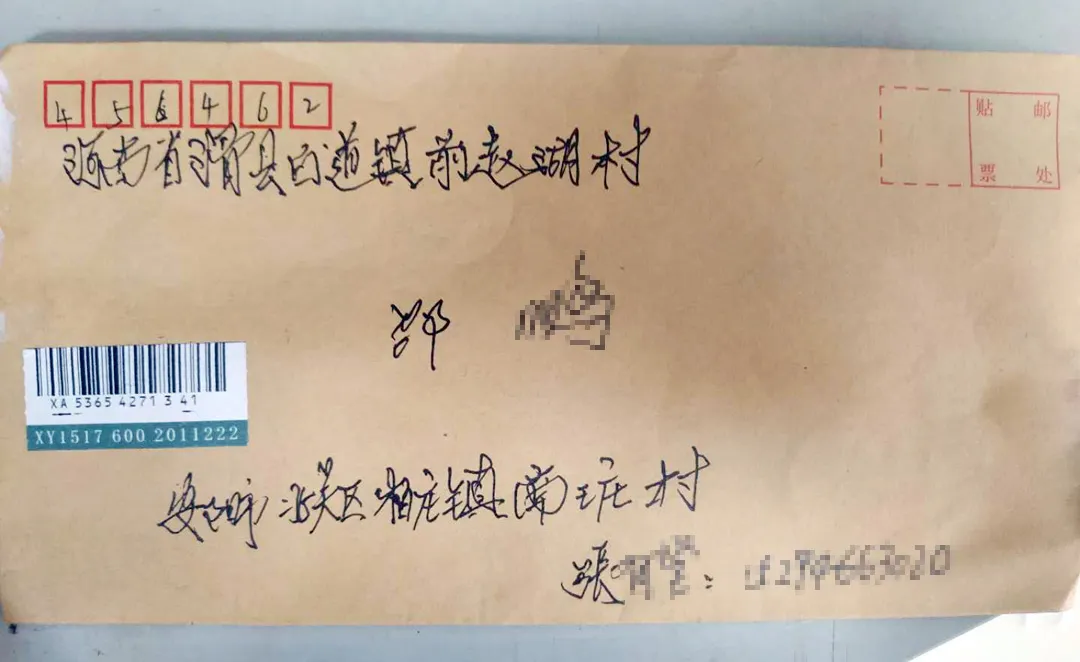 456462
贴 邮
票 处
河南省滑县白道镇前赵湖村
邵
XA 5365 4271 3 41
XY1517 600 2011222
安阳市北关区柏庄镇南庄村
张